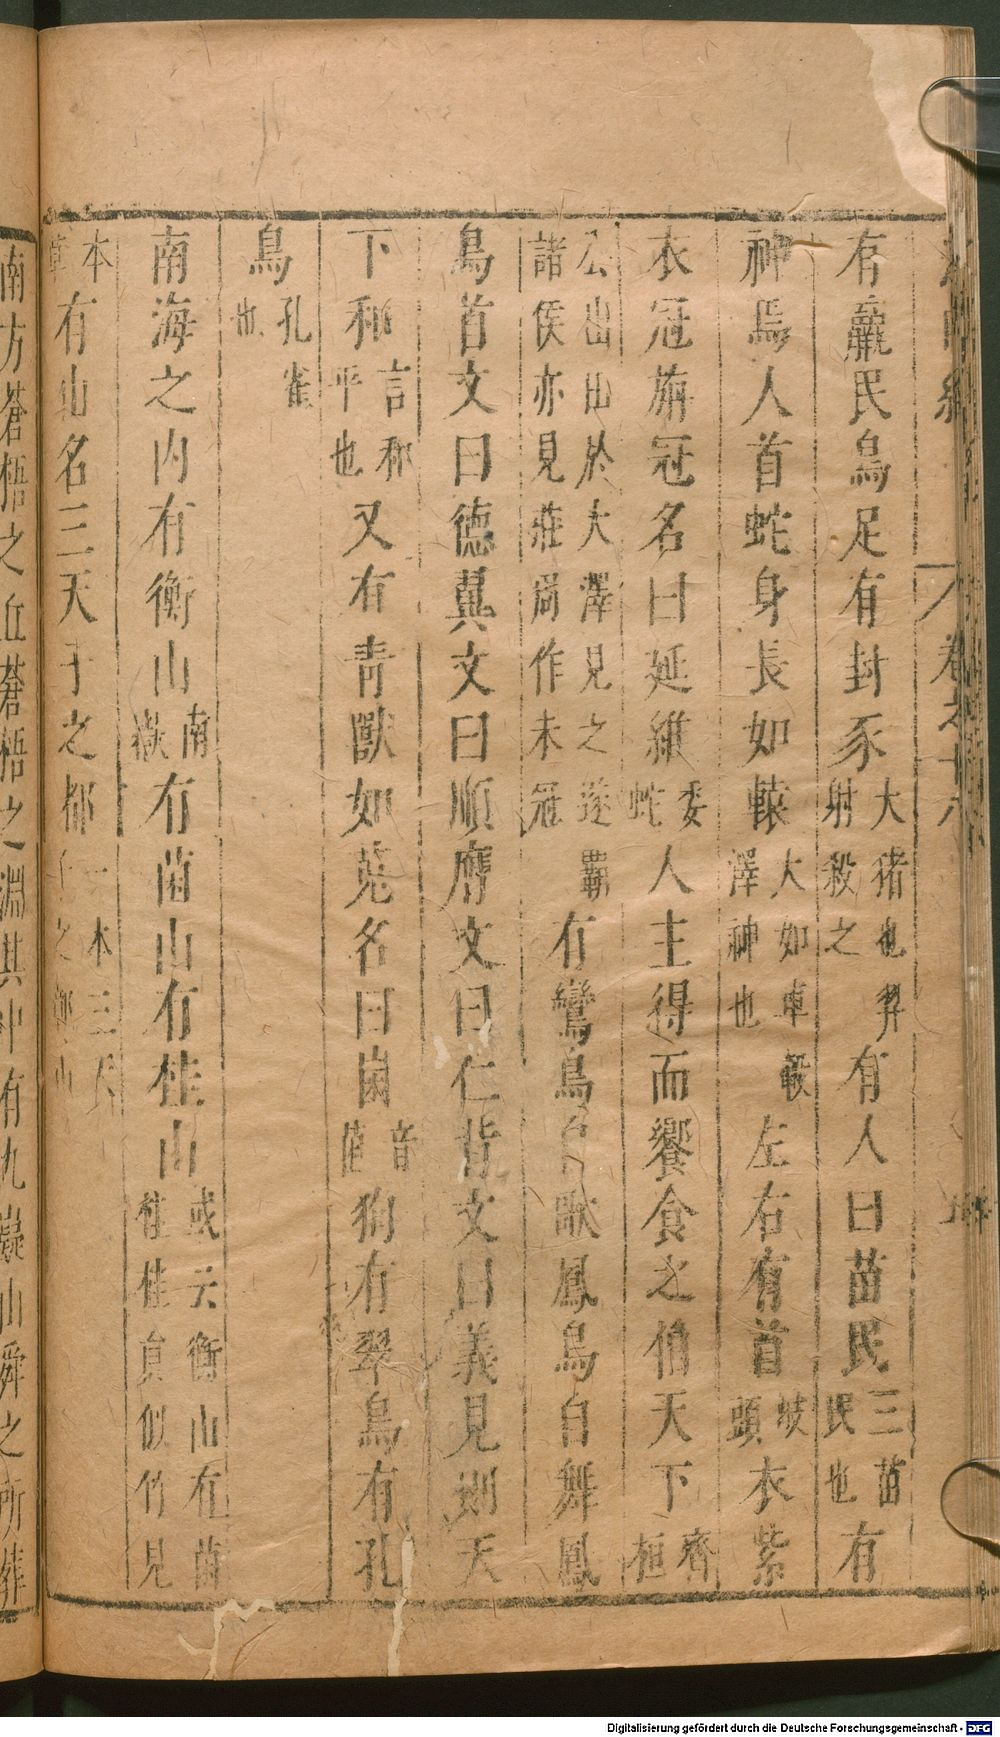 山海經 卷之十八
有嬴民鳥足有封豕大猪也羿射殺之有人曰苗民三苗民也有
神焉人首蛇身長如轅大如車轂澤神也左右有首岐頭衣紫
衣冠旃冠名曰延維委蛇人主得而饗食之伯天下齊桓
公出田於大澤見之遂霸諸侯亦見莊周作朱冠有鸞鳥自歌鳳鳥自舞鳳
鳥首文曰德翼文曰順膺文曰仁背文曰義見則天
下和言和平也又有青獸如菟名曰𡷰音菌狗有翠鳥有孔
鳥孔雀也
南海之内有衡山南嶽有菌山有桂山或云衡山有菌桂桂員似竹見
本草有山名三天子之都一本三天子之鄣山
南方蒼梧之丘蒼梧之淵其中有九嶷山舜之所葬
Digitalisierung gefördert durch die Deutsche Forschungsgemeinschaft - DFG